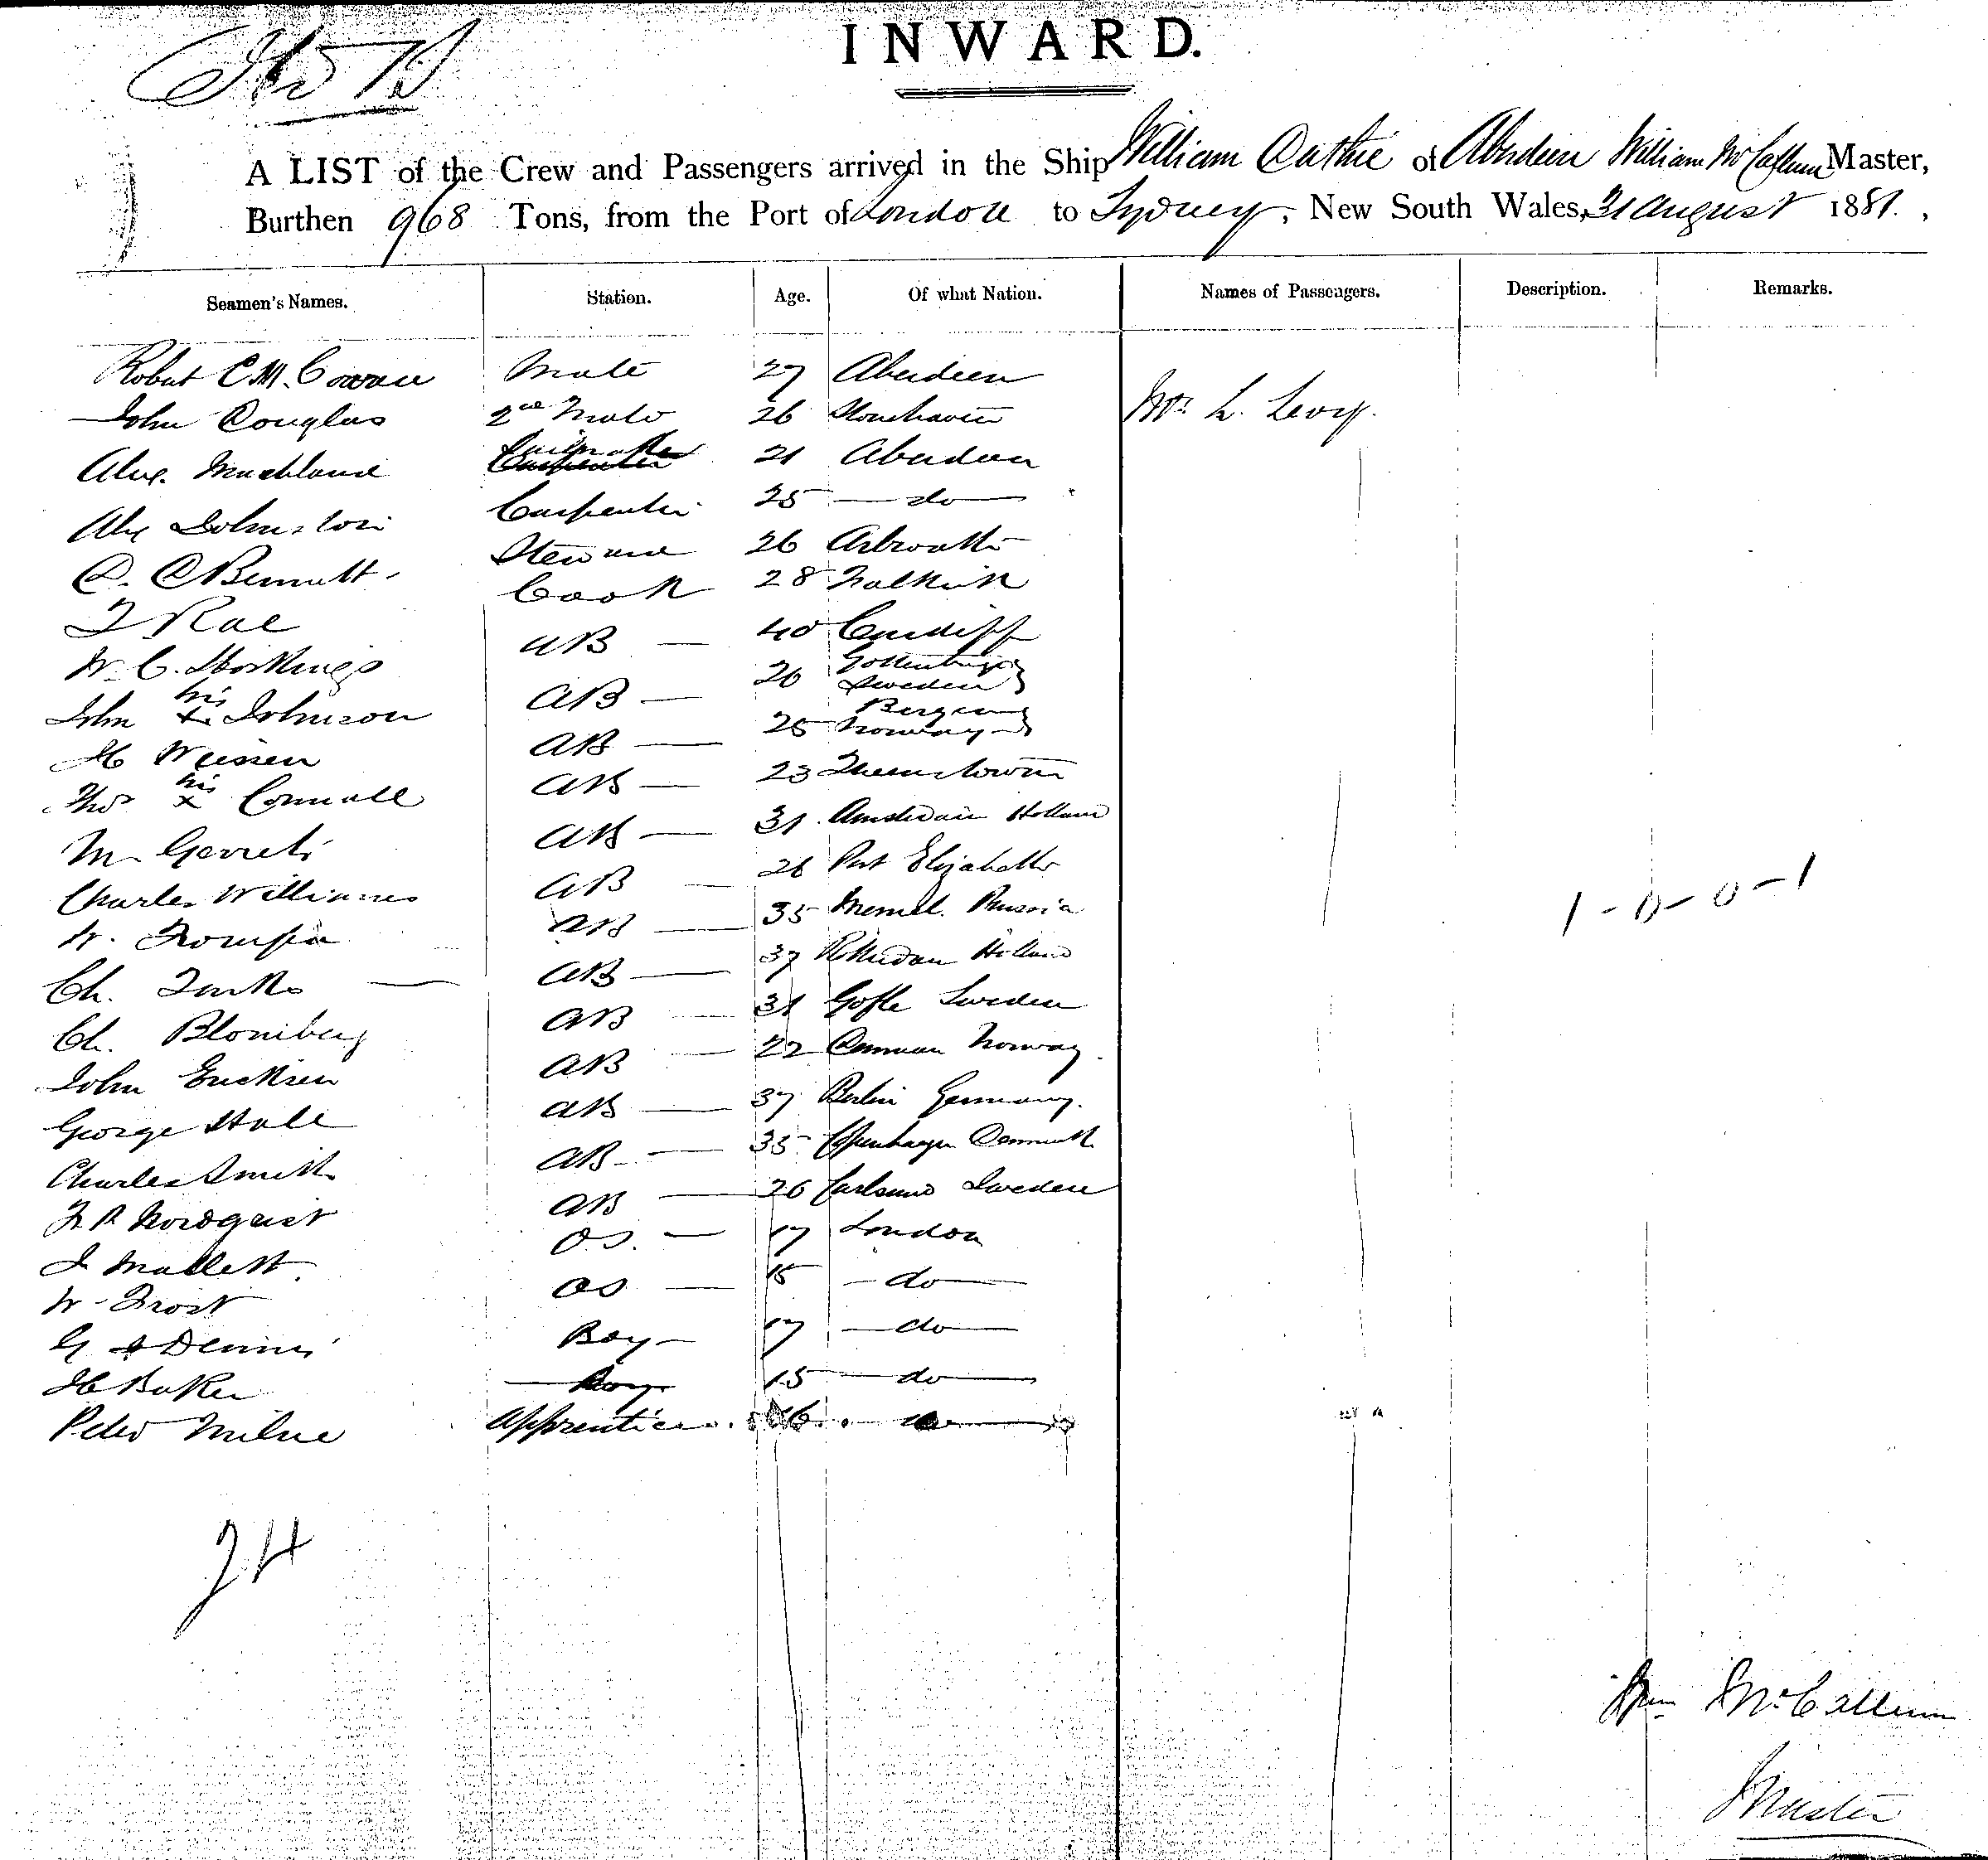 INWARD.
A LIST of the Crew and Passengers arrived in the Ship William Duthie of Aberdeen William McCallum Master,
Burthen 968 Tons, from the Port of London to Sydney, New South Wales, 31 August 1881.,
Seamen's Names. Station. Age. Of what Nation. Names of Passengers. Description. Remarks.
Robert C M. Cowan Mate 27 Aberdeen
John Douglas 2nd Mate 26 Stonehaven Mr. L. Levy.
Alex. Sailmaker 21 Aberdeen
Alex Johnston Carpenter 25 — do —
D. Bennett. Steward 26 Arbroath
Rae Cook 28 Falkirk
W. C. Hoskings AB — 40 Cardiff
John his x Johnson AB — 26 Gottenburg Sweden
H AB — 25 Bergen Norway
Thos his x Connell AB — 23 Queenstown
M Gerrets AB — 31 Amsterdam Holland
Charles Williams AB — 26 Port Elizabeth
W. AB — 35 Memel.
Ch. AB — 37 Rotterdam Holland
Ch. Blomberg AB — 31 Gefle Sweden
John Ericksen AB — 22 Norway
George Hall AB — 37 Berlin Germany.
Charles Smith AB — 35 Copenhagen Denmark
Nordquist AB — 26 Sweden
J Mallett. OS. — 17 London
W. Frost OS — 15 — do —
G Dennis Boy — 17 — do —
H Baker Boy 15 — do —
Peter Milne Apprentice 16
1-0-0-1
24
Wm McCallum
Master